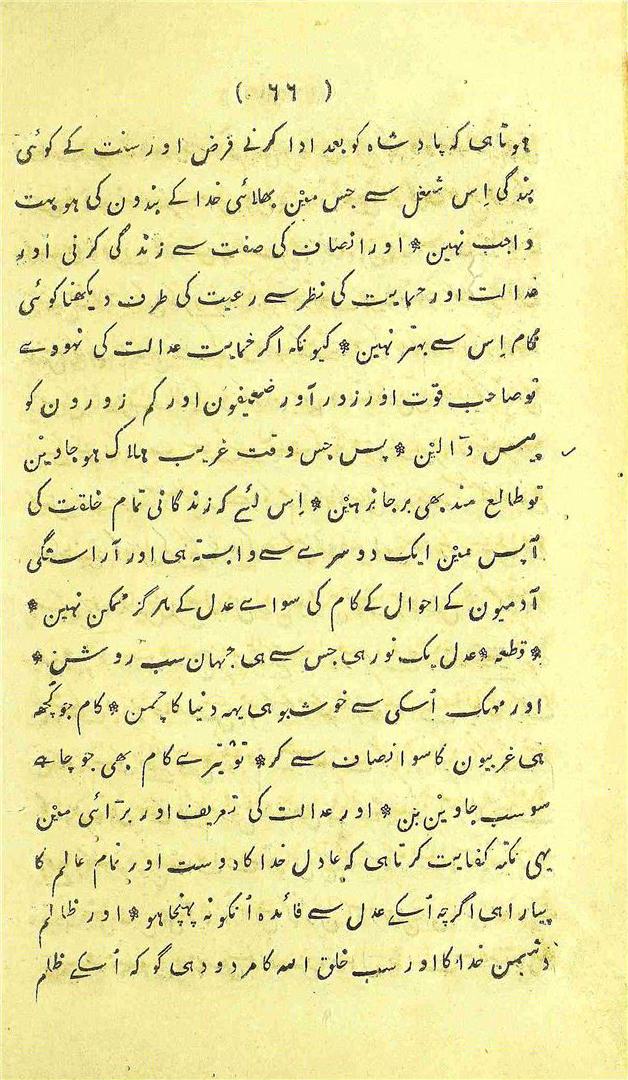 ( ٦٦ )
ہوتا ہی کہ پادشاہ کو بعد ادا کرنے فرض اور سنت کے کوئی
بندگی اِس شغل سے جس میٚں بھلائی خدا کے بندون کی ہو بہت
واجب نہیٚن * اور انصاف کی صفت سے زندگی کرنی اور
عدالت اور حمایت کی نظر سے رعیت کی طرف دیکھنا کوئی
کام اِس سے بہتر نہیٚن * کیونکہ اگر حمایت عدالت کی نہووے
تو صاحب قوّت اور زور آور ضعیفون اور کم زورون کو
پیس ڈالیٚن * پس جس وقت غریب ہلاک ہو جاویٚن
تو طالع مند بھی بر جا نرہیٚن * اِس لئے کہ زندگانی تمام خلقت کی
آپس میٚن ایک دوسرے سے وابستہ ہی اور آراستگی
آدمیون کے احوال کے کام کی سواے عدل کے ہرگز ممکن نہیٚن *
* قطعہ * عدل یک نور ہی جس سے ہی جہان سب روشن *
اور مہک اُسکی سے خوشبو ہی یہہ دنیا کا چمن * کام جو کُچھ
ہی غریبون کا سو انصاف سے کر * تو تیرے کام بھی جو چاہے
سو سب جاویٚن بن * اور عدالت کی تعریف اور بڑائی میٚن
یہی نکتہ کفایت کرتا ہی کہ عادل خدا کا دوست اور تمام عالم کا
پیارا ہی اگرچہ اُسکے عدل سے فائدہ اُنکو نہ پہنچا ہو * اور ظالم
دشمن خدا کا اور سب خلق اللہ کا مردود ہی گو کہ اُسکے ظلم